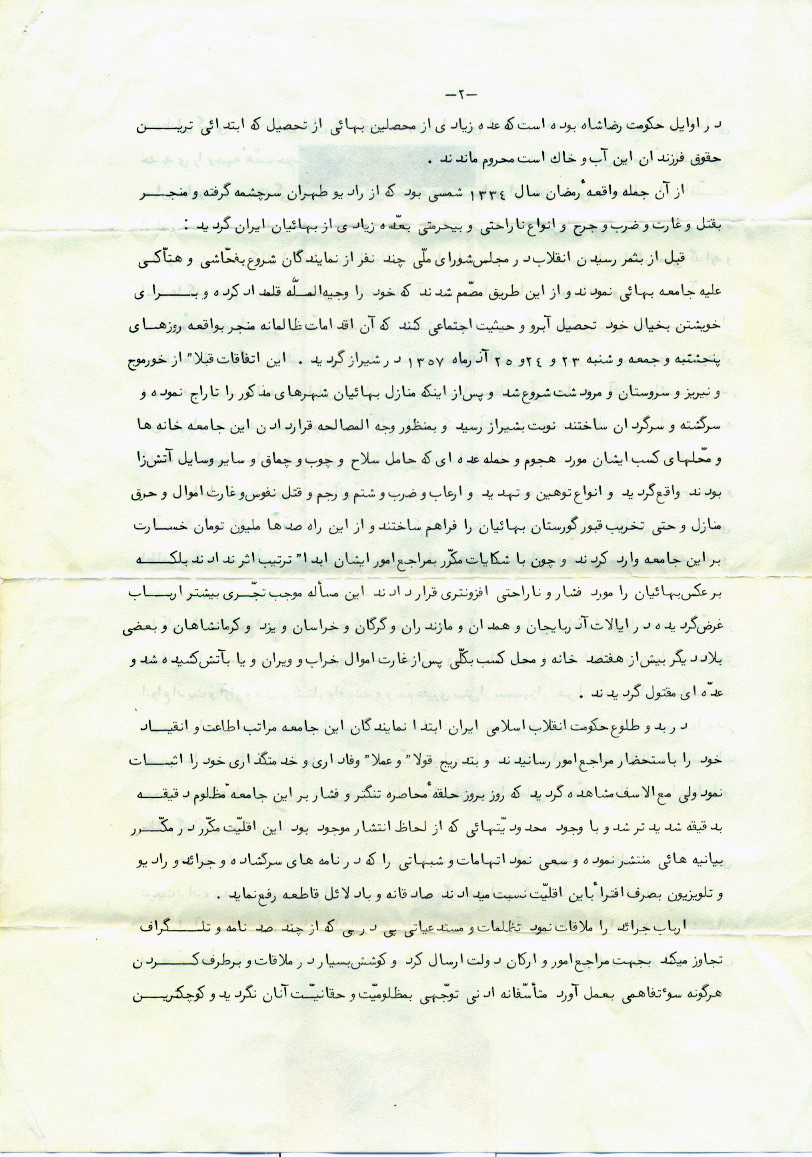 -۲-
در اوایل حکومت رضاشاه بوده است که عده زیادی از محصلین بهائی از تحصیل که ابتدائی ترین
حقوق فرزندان این آب و خاك است محروم ماندند .
از آن جمله واقعهٔ رمضان سال ۱۳۳٤ شمسی بود که از رادیو طهران سرچشمه گرفته و منجر
بقتل و غارت و ضرب و جرح و انواع ناراحتی و بیحرمتی بعدّه زیادی از بهائیان ایران گردید :
قبل از بثمر رسیدن انقلاب در مجلس شورای ملّی چند نفر از نمایندگان شروع بفحّاشی و هتّاکی
علیه جامعه بهائی نمودند و از این طریق مصّمم شدند که خود را وجیه المـلّه قلمداد کرده و برای
خویشتن بخیال خود تحصیل آبرو و حیثیت اجتماعی کنند که آن اقدامات ظالمانه منجر بواقعه روزهای
پنجشنبه و جمعه و شنبه ۲۳ و ۲٤ و ۲۵ آذرماه ۱۳۵۷ در شیراز گردید . این اتفاقات قبلا" از خورموج
و نیریز و سروستان و مرودشت شروع شد و پس از اینکه منازل بهائیان شهرهای مذکور را تاراج نموده و
سرگشته و سرگردان ساختند نوبت بشیراز رسید و بمنظور وجه المصالحه قرار دادن این جامعه خانه ها
و محّلهای کسب ایشان مورد هجوم و حمله عده ای که حامل سلاح و چوب و چماق و سایر وسایل آتش زا
بودند واقع گردید و انواع توهین و تهدید و ارعاب و ضرب و شتم و رجم و قتل نفوس و غارت اموال و حرق
منازل و حتی تخریب قبور گورستان بهائیان را فراهم ساختند و از این راه صدها ملیون تومان خسارت
بر این جامعه وارد کردند و چون با شکایات مکّرر بمراجع امور ایشان ابدا" ترتیب اثر ندادند بلکه
برعکس بهائیان را مورد فشار و ناراحتی افزونتری قرار دادند این مسأله موجب تجّری بیشتر ارباب
غرض گردیده در ایالات آذربایجان و همدان و مازندران و گرگان و خراسان و یزد و کرمانشاهان و بعضی
بلاد دیگر بیش از هفتصد خانه و محل کسب بکلّی پس از غارت اموال خراب و ویران و یا بآتش کشیده شد و
عدّه ای مقتول گردیدند .
در بدو طلوع حکومت انقلاب اسلامی ایران ابتدا نمایندگان این جامعه مراتب اطاعت و انقیاد
خود را باستحضار مراجع امور رسانیدند و بتدریج قولا" و عملا" وفاداری و خدمتگذاری خود را اثبات
نمود ولی مع الاسف مشاهده گردید که روز بروز حلقهٔ محاصره تنگتر و فشار بر این جامعهٔ مظلوم دقیقه
بدقیقه شدیدتر شد و با وجود محدودیّتهائی که از لحاظ انتشار موجود بود این اقلیّت مکّرر در مکّرر
بیانیه هائی منتشر نموده و سعی نمود اتهامات و شبهاتی را که در نامه های سرگشاده و جرائد و رادیو
و تلویزیون بصرف افتراٴ باین اقلیّت نسبت میدادند صادقانه و با دلائل قاطعه رفع نماید .
ارباب جرائد را ملاقات نمود تظلمات و مستدعیاتی پی در پی که از چند صد نامه و تلگراف
تجاوز میکند بجهت مراجع امور و ارکان دولت ارسال کرد و کوشش بسیار در ملاقات و برطرف کردن
هرگونه سوٴتفاهمی بعمل آورد متأسّفانه ادنی توّجهی بمظلومیّت و حقانیّت آنان نگردید و کوچکترین